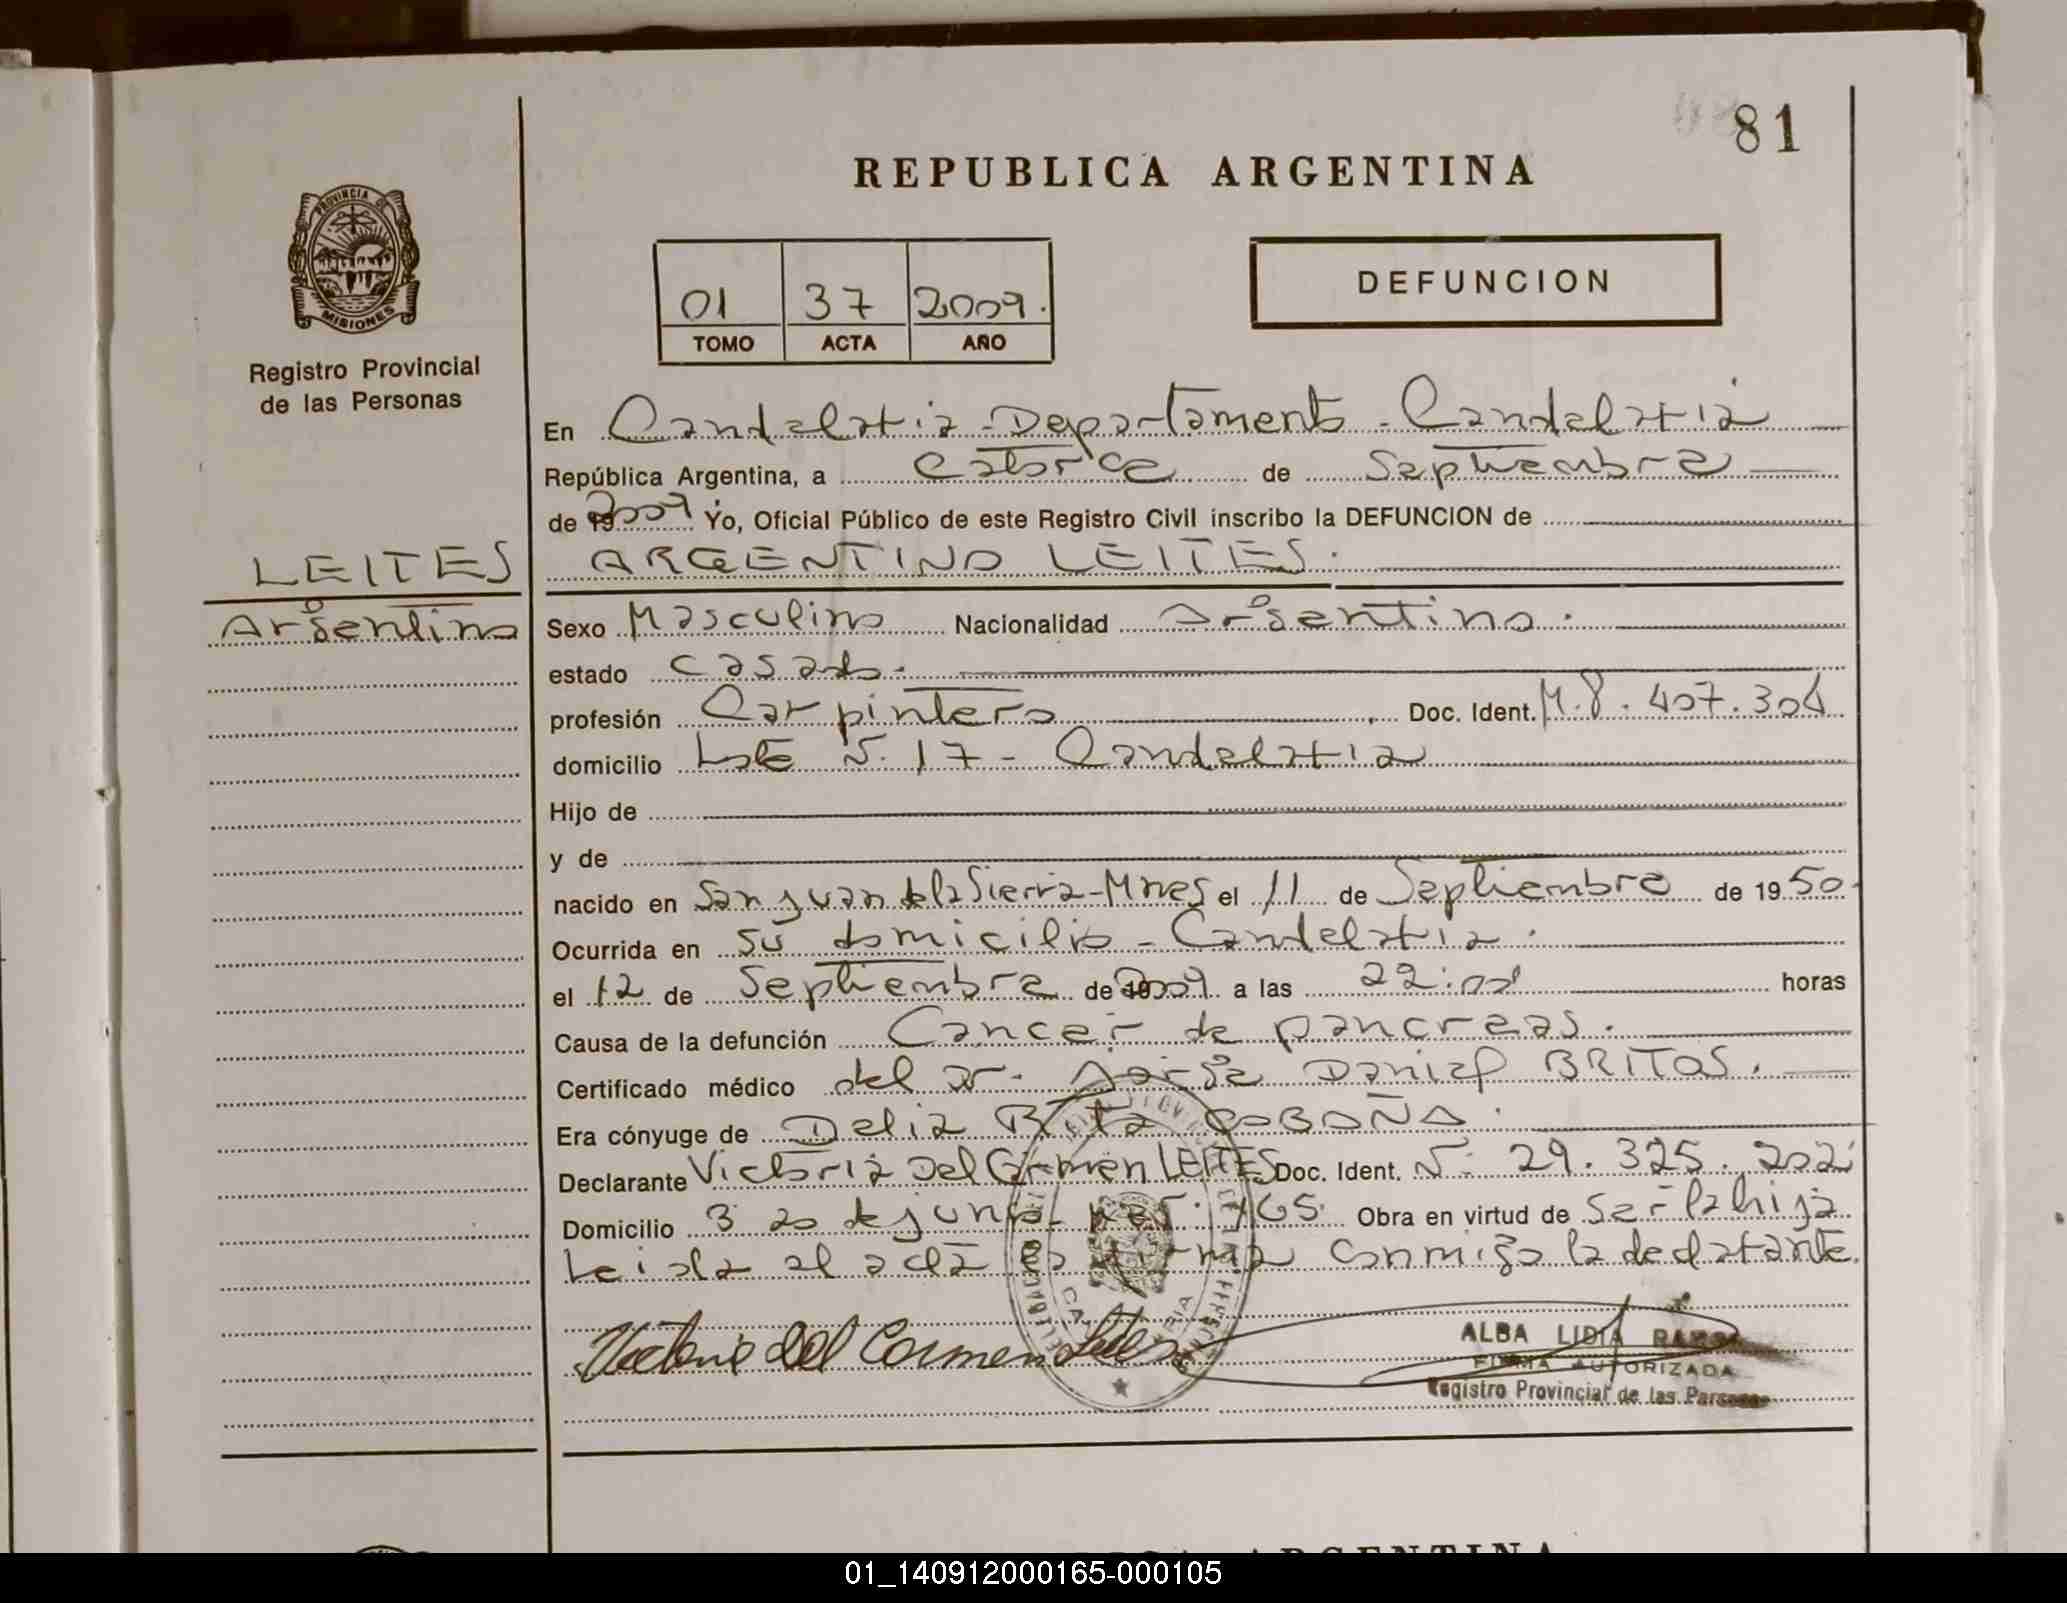 81
REPUBLICA ARGENTINA
PROVINCIA DE
MISIONES
Registro Provincial
de las Personas
01 37 2009.
TOMO ACTA AÑO
DEFUNCION
En Candelaria - Departamento - Candelaria
República Argentina, a catorce de Septiembre
de 2009 Yo, Oficial Público de este Registro Civil inscribo la DEFUNCION de
LEITES
Argentino
ARGENTINO LEITES.
Sexo Masculino Nacionalidad Argentino.
estado casado.
profesión Carpintero Doc. Ident. M.8.407.304
domicilio Lote N. 17 - Candelaria
Hijo de
y de
nacido en San Juan de la Sierra - Mnes el 11 de Septiembre de 1950.
Ocurrida en su domicilio - Candelaria.
el 12 de Septiembre de 2009 a las 22:00 horas
Causa de la defunción Cancer de pancreas.
Certificado médico del Dr. Jorge Daniel BRITOS.
Era cónyuge de Delia COBAÑO.
Declarante Victoria Del Carmen LEITES Doc. Ident. N. 29.325.202
Domicilio 20 de junio 165 Obra en virtud de ser la hija
Leida el acta la firma conmigo la declarante.
Victoria Del Carmen Leites
ALBA LIDIA
FIRMA AUTORIZADA
Registro Provincial de las Personas
ARGENTINA
01_140912000165-000105